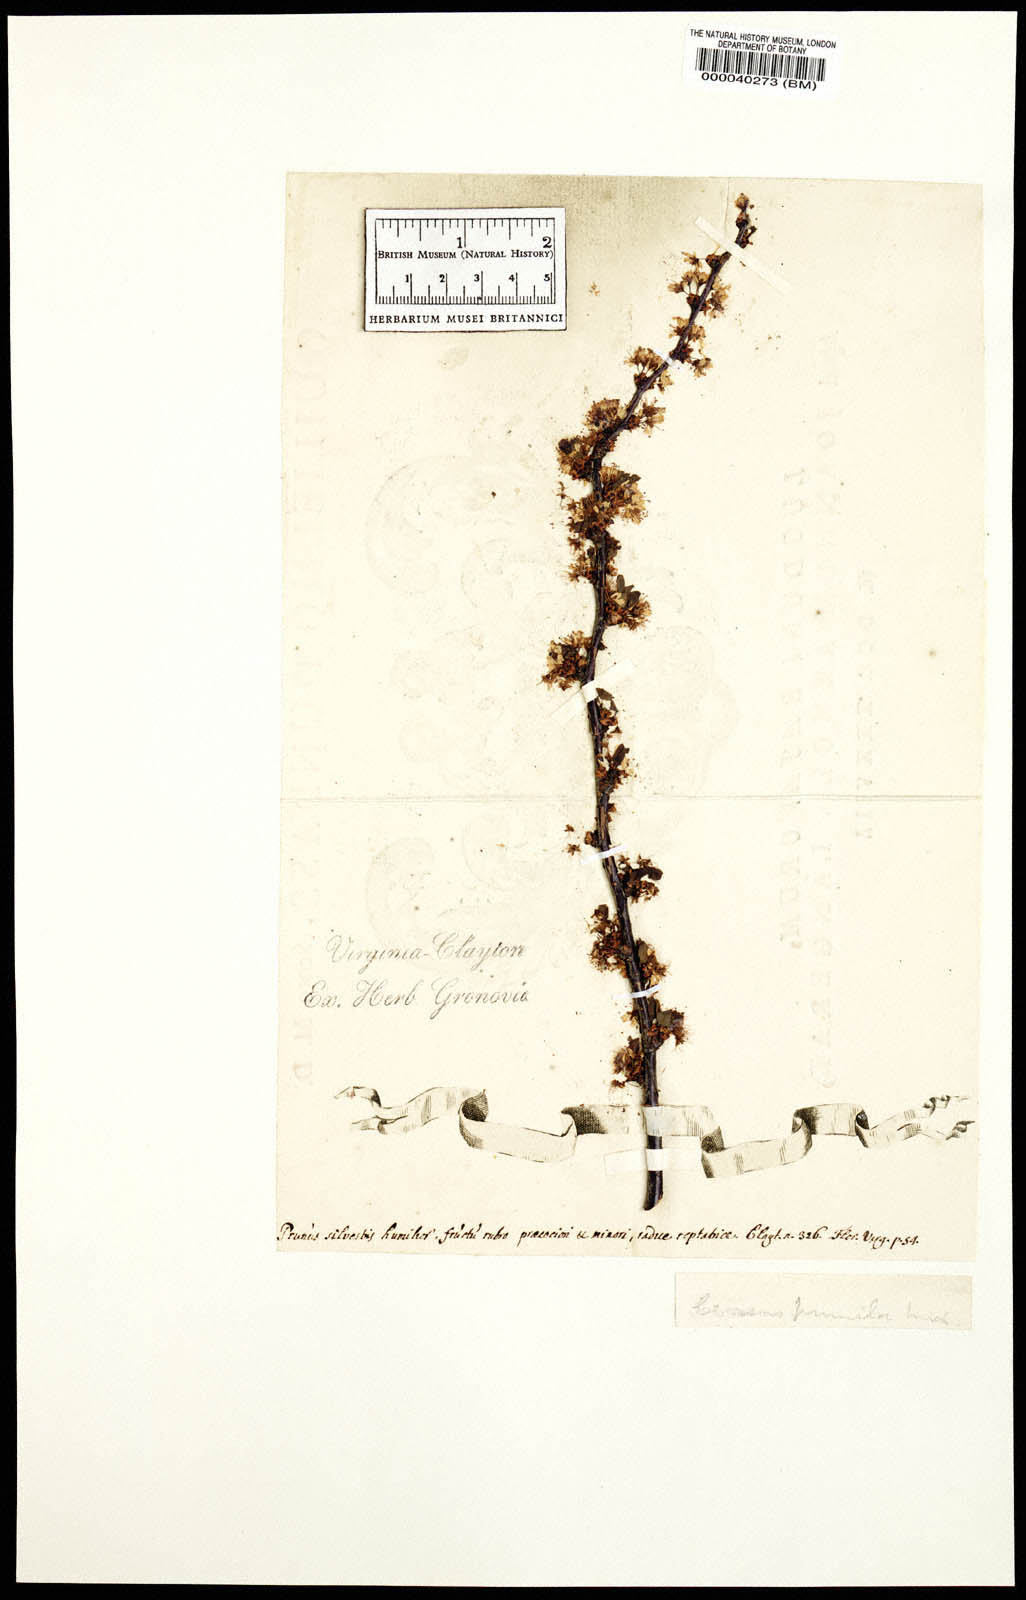 THE NATURAL HISTORY MUSEUM, LONDON
DEPARTMENT OF BOTANY
000040273 (BM)
1 2
BRITISH MUSEUM (NATURAL HISTORY)
1 2 3 4 5
HERBARIUM MUSEI BRITANNICI
Virginia-Clayton
Ex. Herb Gronovio
Prunus silvestris humilior, fructu rubro præcociori & minori, radice reptatrice. Clayt. n. 326. Flor. Virg. p. 54.
pumila